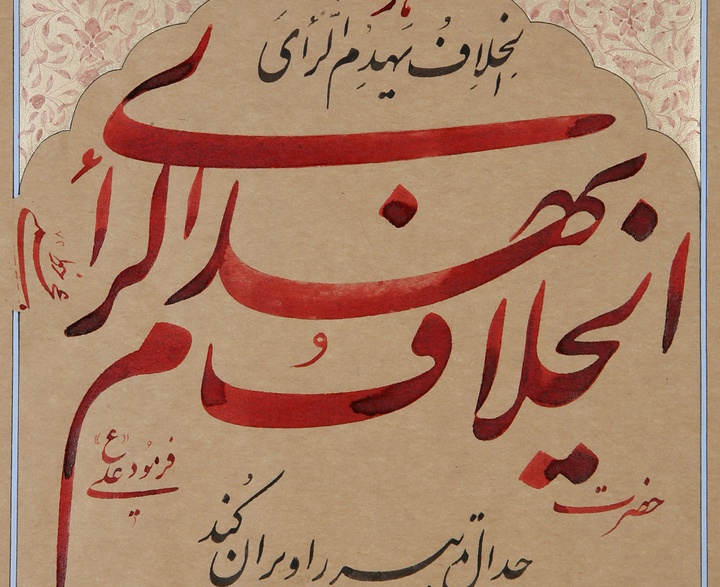 الخِلافُ یَهدِمُ الرَّأیَ
الخلافُ یهدم الرأی
حضرت علی «ع» فرمود
جدال تدبیر را ویران کُند